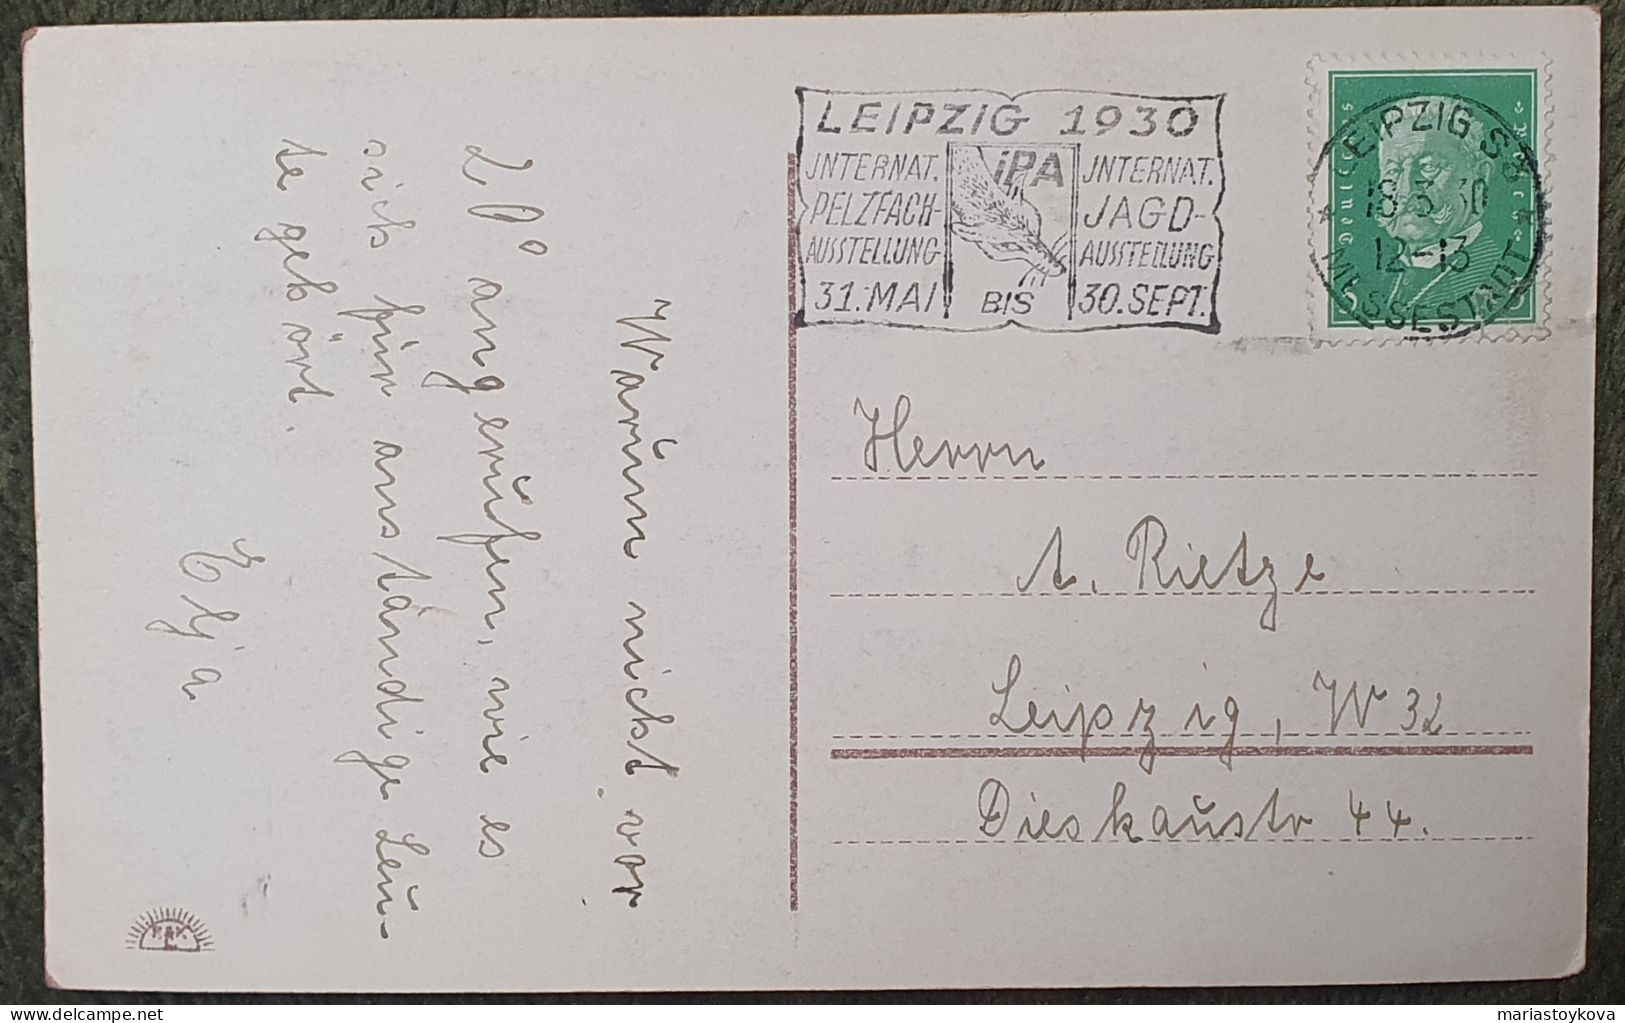 LEIPZIG 1930
INTERNAT.
PELZFACH-
AUSSTELLUNG
31. MAI
iPA
BIS
INTERNAT.
JAGD-
AUSSTELLUNG
30. SEPT.
LEIPZIG S3
18.3.30
12-13
MESSESTADT
Deutsches
Warum nicht vor
angerufen, wie es
sich für anständige Leu-
te gehört.
Elja
Herrn
A. Rietze
Leipzig, W 32
Dieskaustr 44.
mariastoykova